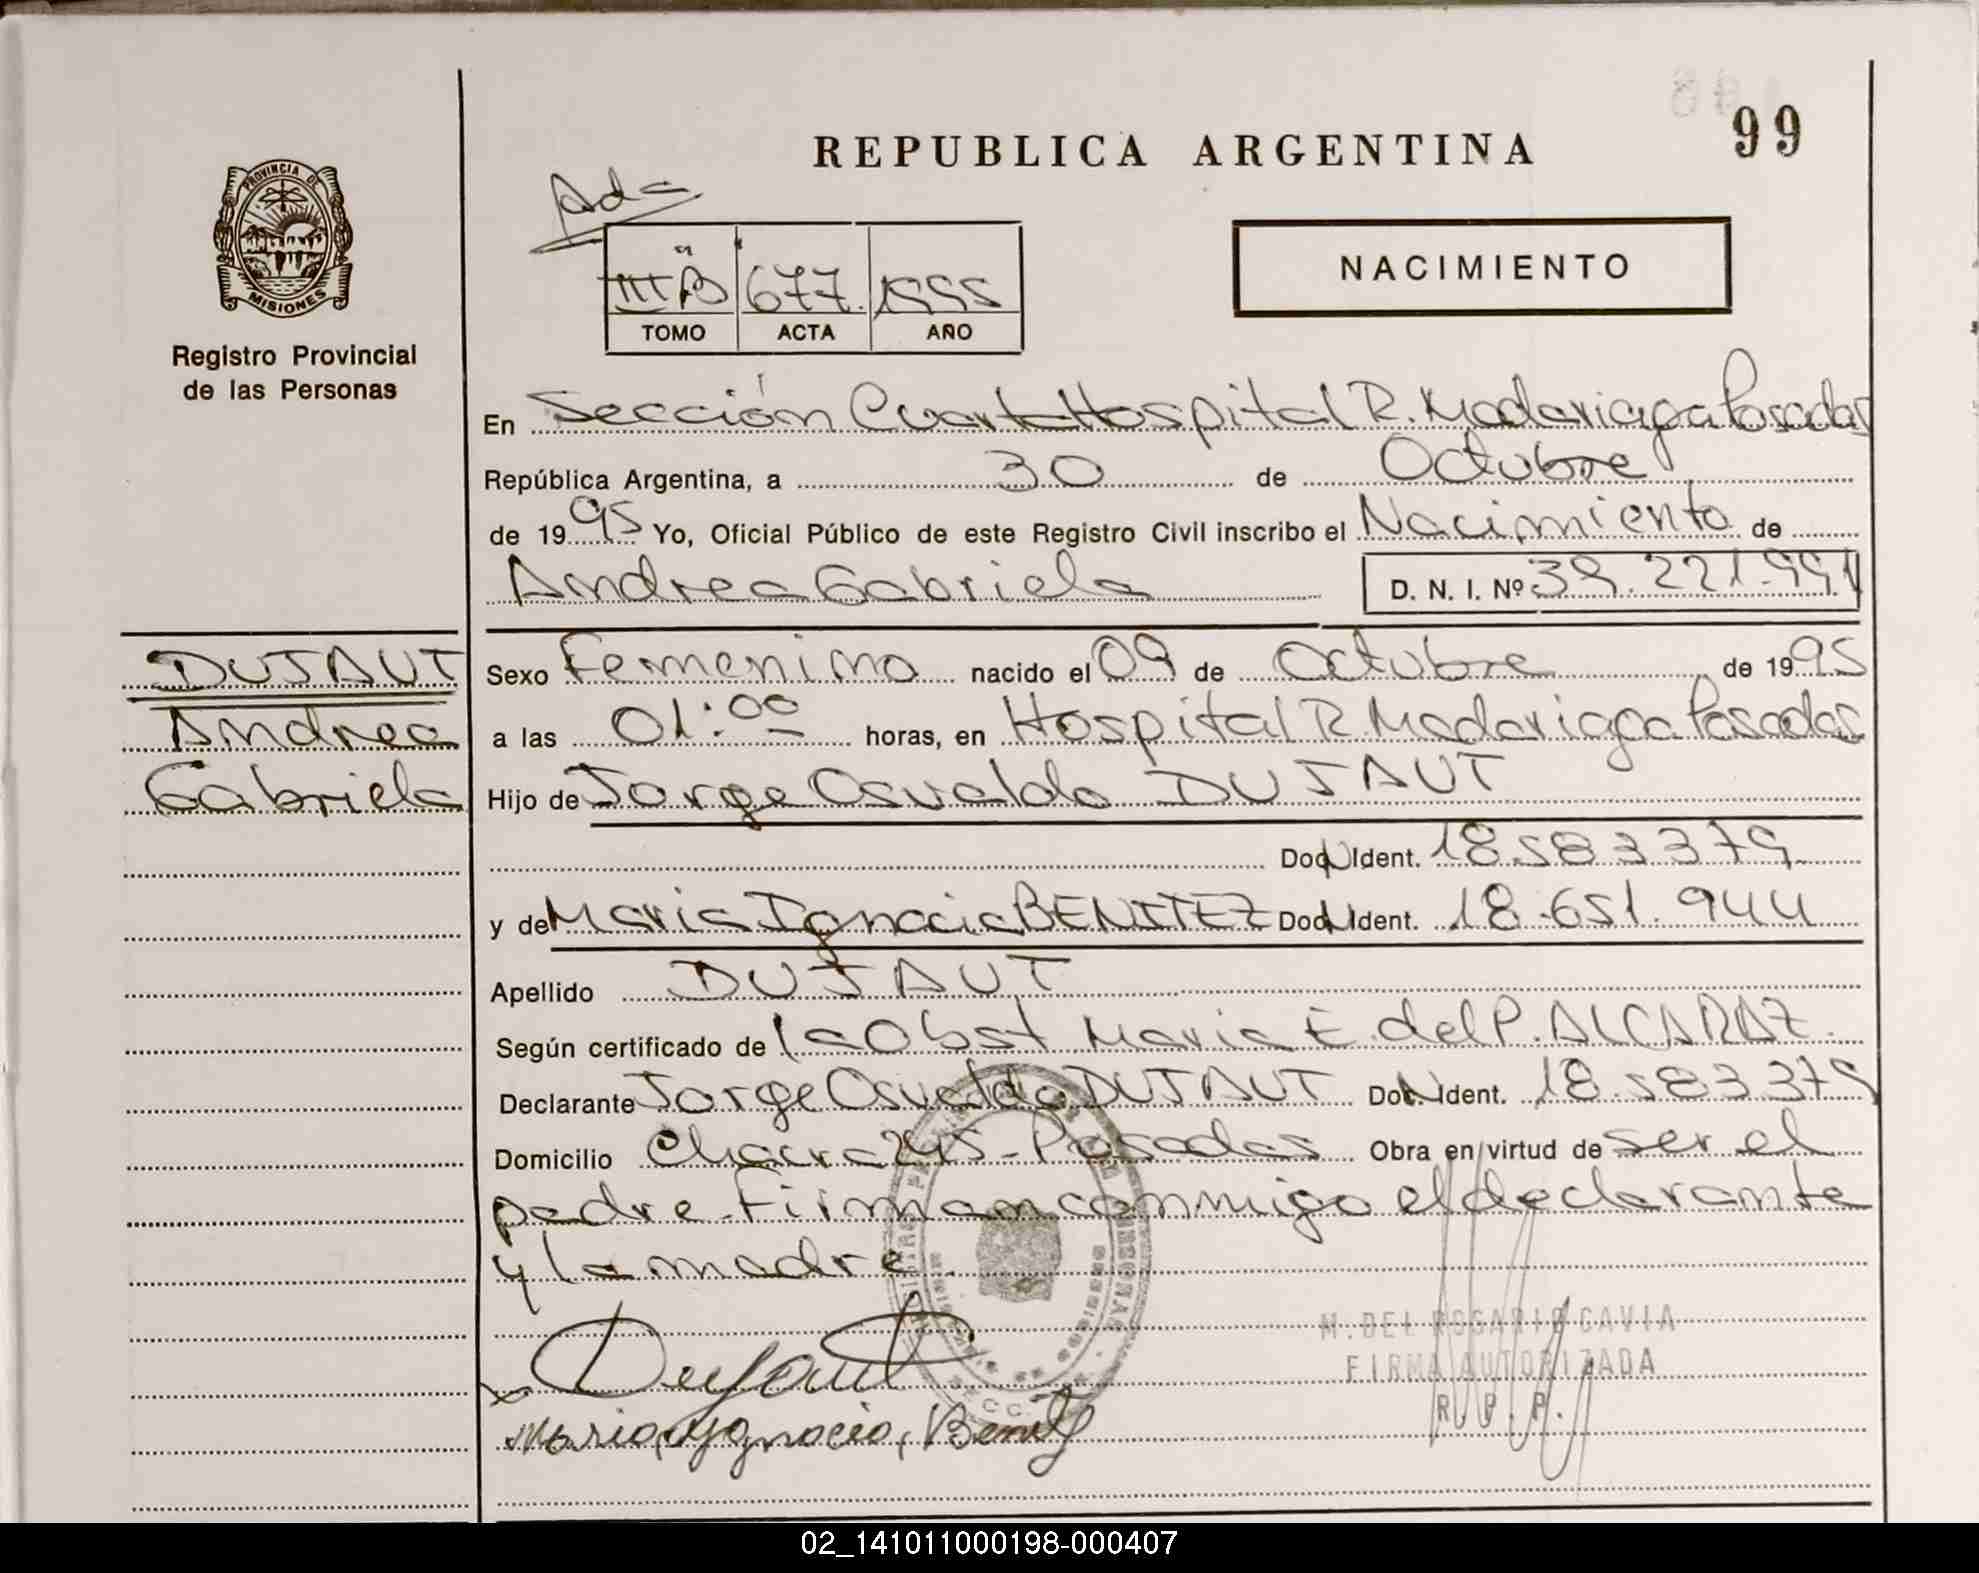 99
REPUBLICA ARGENTINA
Ads
NACIMIENTO
PROVINCIA DE
MISIONES
III "B" 677. 1995
TOMO ACTA AÑO
Registro Provincial
de las Personas
En Sección Cuarta Hospital R. Madariaga Posadas
República Argentina, a 30 de Octubre
de 1995 Yo, Oficial Público de este Registro Civil inscribo el Nacimiento de
Andrea Gabriela D. N. I. Nº 39.221.991
DUJAUT
Andrea
Gabriela
Sexo Femenino nacido el 09 de Octubre de 1995
a las 01:00 horas, en Hospital R. Madariaga Posadas
Hijo de Jorge Osvaldo DUJAUT
Doc. Ident. 18.583.379
y de Maria Ignacia BENITEZ Doc. Ident. 18.651.944
Apellido DUJAUT
Según certificado de la Obst Maria E. del P. ALCARAZ.
Declarante Jorge Osvaldo DUJAUT Doc. Ident. 18.583.379
Domicilio Chacra 245 - Posadas Obra en virtud de ser el
padre. Firman conmmigo el declarante
y la madre.
M. DEL ROSARIO CAVIA
FIRMA AUTORIZADA
R. P. P.
x Dujaut
Maria, Ygnacia, Benitez
02_141011000198-000407